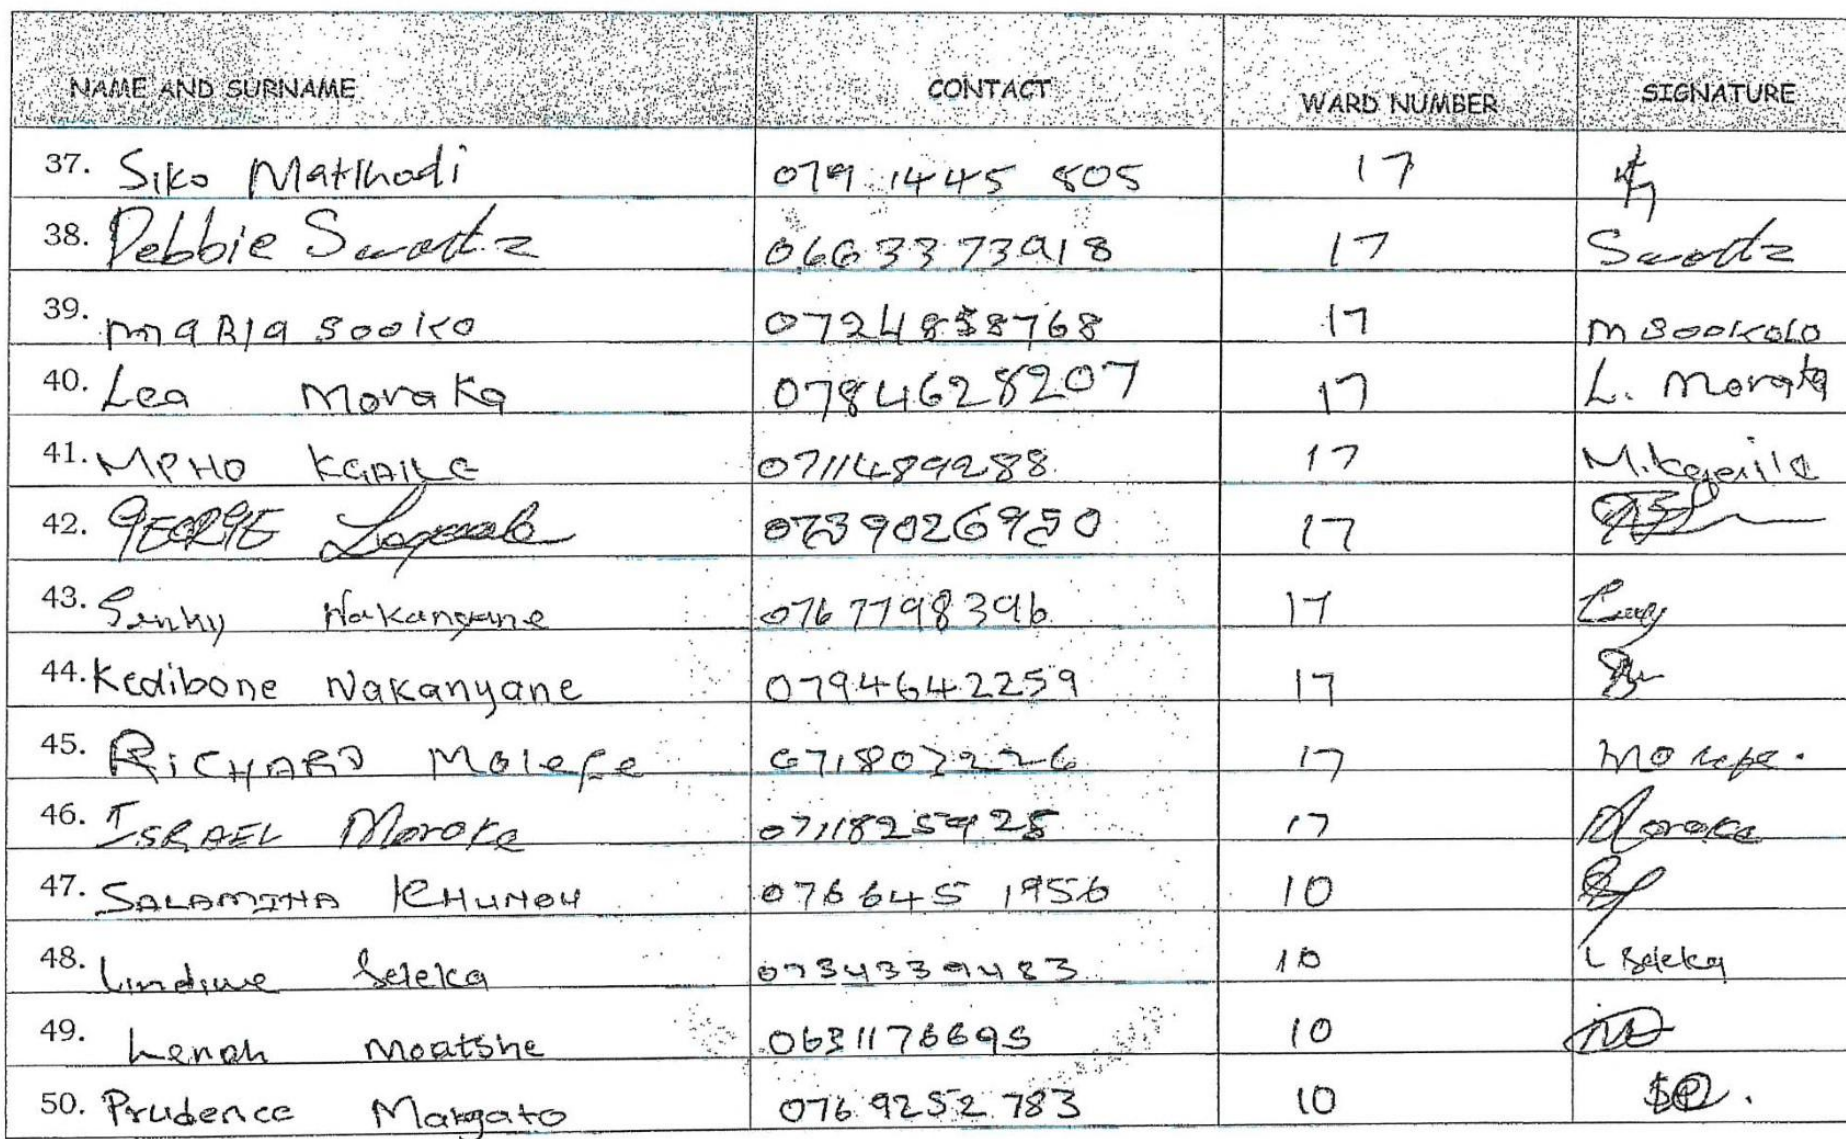 NAME AND SURNAME CONTACT WARD NUMBER SIGNATURE
37. Siko Matlhodi 079 1445 805 17
38. Debbie Swartz 0663373918 17 Swartz
39. maRia sooko 0724858768 17 m sookolo
40. Lea Moraka 0784628207 17 L. Moraka
41. MPHO KGAILE 0711489288 17 M.kgaile
42. GEORGE 0739026950 17
43. Nakanyane 0767798396 17
44. Kedibone Nakanyane 0794642259 17
45. RiCHARD Molefe 0718072226 17 Molefe.
46. ISRAEL Moroke 0711825928 17 Moroke
47. SALAMINA KHUNOU 076645 1956 10
48. Lindiwe Seleka 0734339483 10 L Seleka
49. Lenah Moatshe 0631176695 10
50. Prudence Makgato 076 9252 783 10